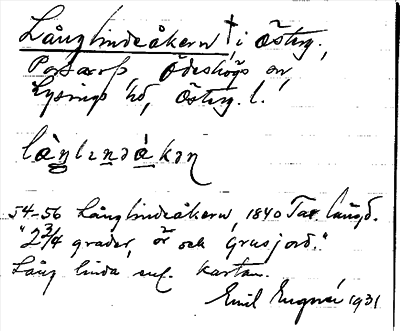 Långlindeåkern † i Österg.,
Ödeshögs sn,
Lysings hd, Österg. l.
54-56 Långlindeåkern, 1840 Tax. längd.
"2 3/4 grader, ör och Grusjord."
Lång linda enl. kartan.
Emil 1931